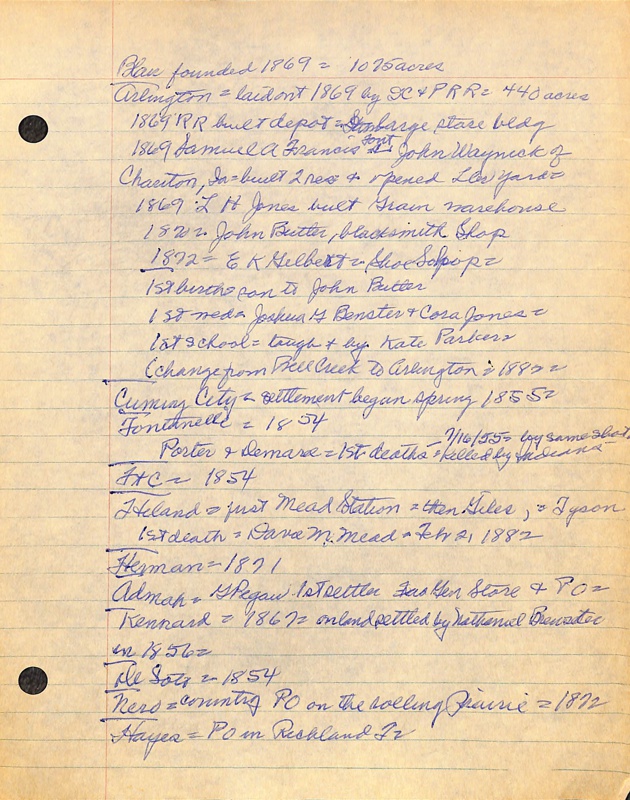 Blair founded 1869 = 1075 acres
Arlington = laid out 1869 by SC & P RR = 440 acres
1869 RR built depot = large store bldg
1869 Samuel A Francis John Waynick of
Chariton, Ia = built 2 res & opened Lbr yard =
1869 L H Jones built Grain warehouse
1870 = John Butler, blacksmith Shop
1872 = E K Gilbert = Shoe Shop =
1st birth = son to John Butler
1st wed = Joshua G Benster & Cora Jones =
1st school = taught by Kate Parker =
(change from Bell Creek to Arlington = 1882 =
Cuming City = settlement began spring 1855 =
Fontanelle = 1854
Porter & Demarx = 1st deaths = 7/16/55 = by same shot,
killed by Indians
Ft C = 1854
Hiland = just Mead Station = then Giles, = Tyson
1st death = Dave M. Mead = Feb 21, 1882
Herman = 1871
Admah = G Pegau 1st settler Gen Store & PO =
Kennard = 1867 = on land settled by Nathaniel Brewster
in 1856 =
De Soto = 1854
Nero = country PO on the rolling Prairie = 1872
Hayes = PO in Richland